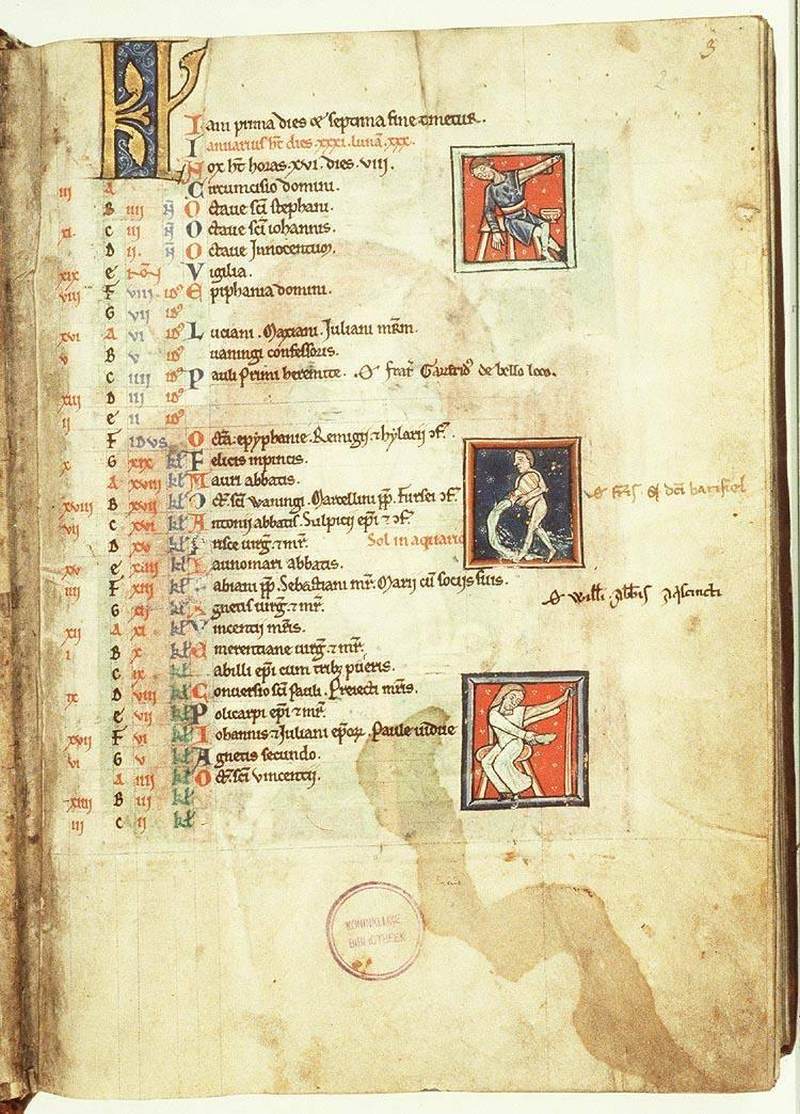 3
KL
Iani prima dies & septima fine timetur.
Ianuarius ht dies .xxxi. luna .xxx.
Nox ht horas .xvi. dies .viii.
iii A Circumcisio domini.
B iiii N Octave sci stephani.
xi. C iii N Octave sci iohannis.
D ii. N Octave Innocentum.
xix E Non Vigilia.
viii F viii id9 Epiphania domini.
G vii id9
xvi A vi id9 Luciani. Maxiani. Juliani mrm.
v B v id9 uaningi confessoris.
C iiii id9 Pauli Primi heremite. & fratr de bello loco.
xiii D iii id9
ii E ii id9
F IDVS Octa epyphanie. Remigii & hylarii cf.
x G xix kl Felicis inpincis.
A xviii kl Mauri abbatis.
xviii B xvii kl Oct. sci waningi. Marcellini pp. Fursei cf.
vii C xvi kl Antonii abbatis. Sulpicii epi & cf.
D xv kl Prisce uirg. & mr. Sol in aquario
xv E xiiii kl Launomari abbatis.
iiii F xiii kl Fabiani pp. Sebastiani mr. Marii cu sociis suis.
& Willi. Abbis
G xii kl Agnetis uirg. & mr.
xii A xi kl Vincentii mris.
i B x kl Emerentiane uirg. & mr.
C ix kl abilli epi cum trib; pueris.
ix D viii kl Conversio sci Pauli. Preiecti mris.
E vii kl Policarpi epi & mr.
xvii F vi kl Iohannis & Juliani epor. Paule uidue
vi G v kl Agnetis secundo.
A iiii kl Oct. sci vincentii.
xiiii B iii kl
iii C ii kl
KONINKLIJKE
BIBLIOTHEEK